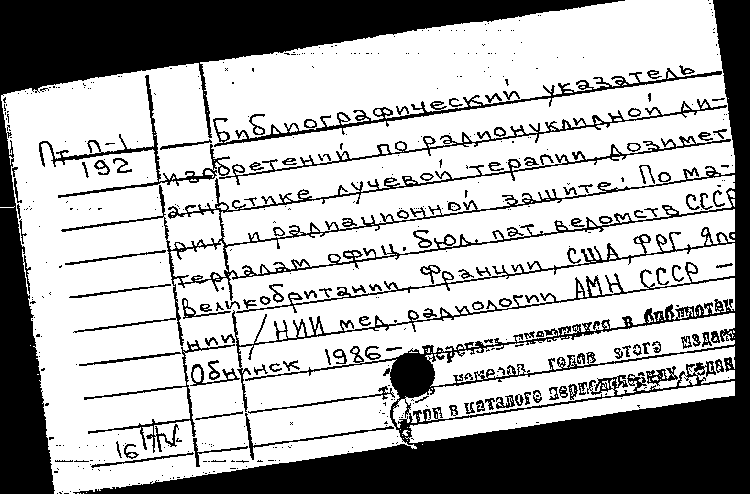 Библиографический указатель
Пт П-1
192
изобретений по радионуклидной ди-
агностике, лучевой терапии, дозимет
рии и радиационной защите: По ма-
териалам офиц. бюл. пат. ведомств СССР
Великобритании, Франции, США, ФРГ, Япо
нии / НИИ мед. радиологии АМН СССР —
Обнинск, 1986—
Перечень имеющихся в библиотек
номеров, годов этого издан
отри в каталоге периодических издан
16